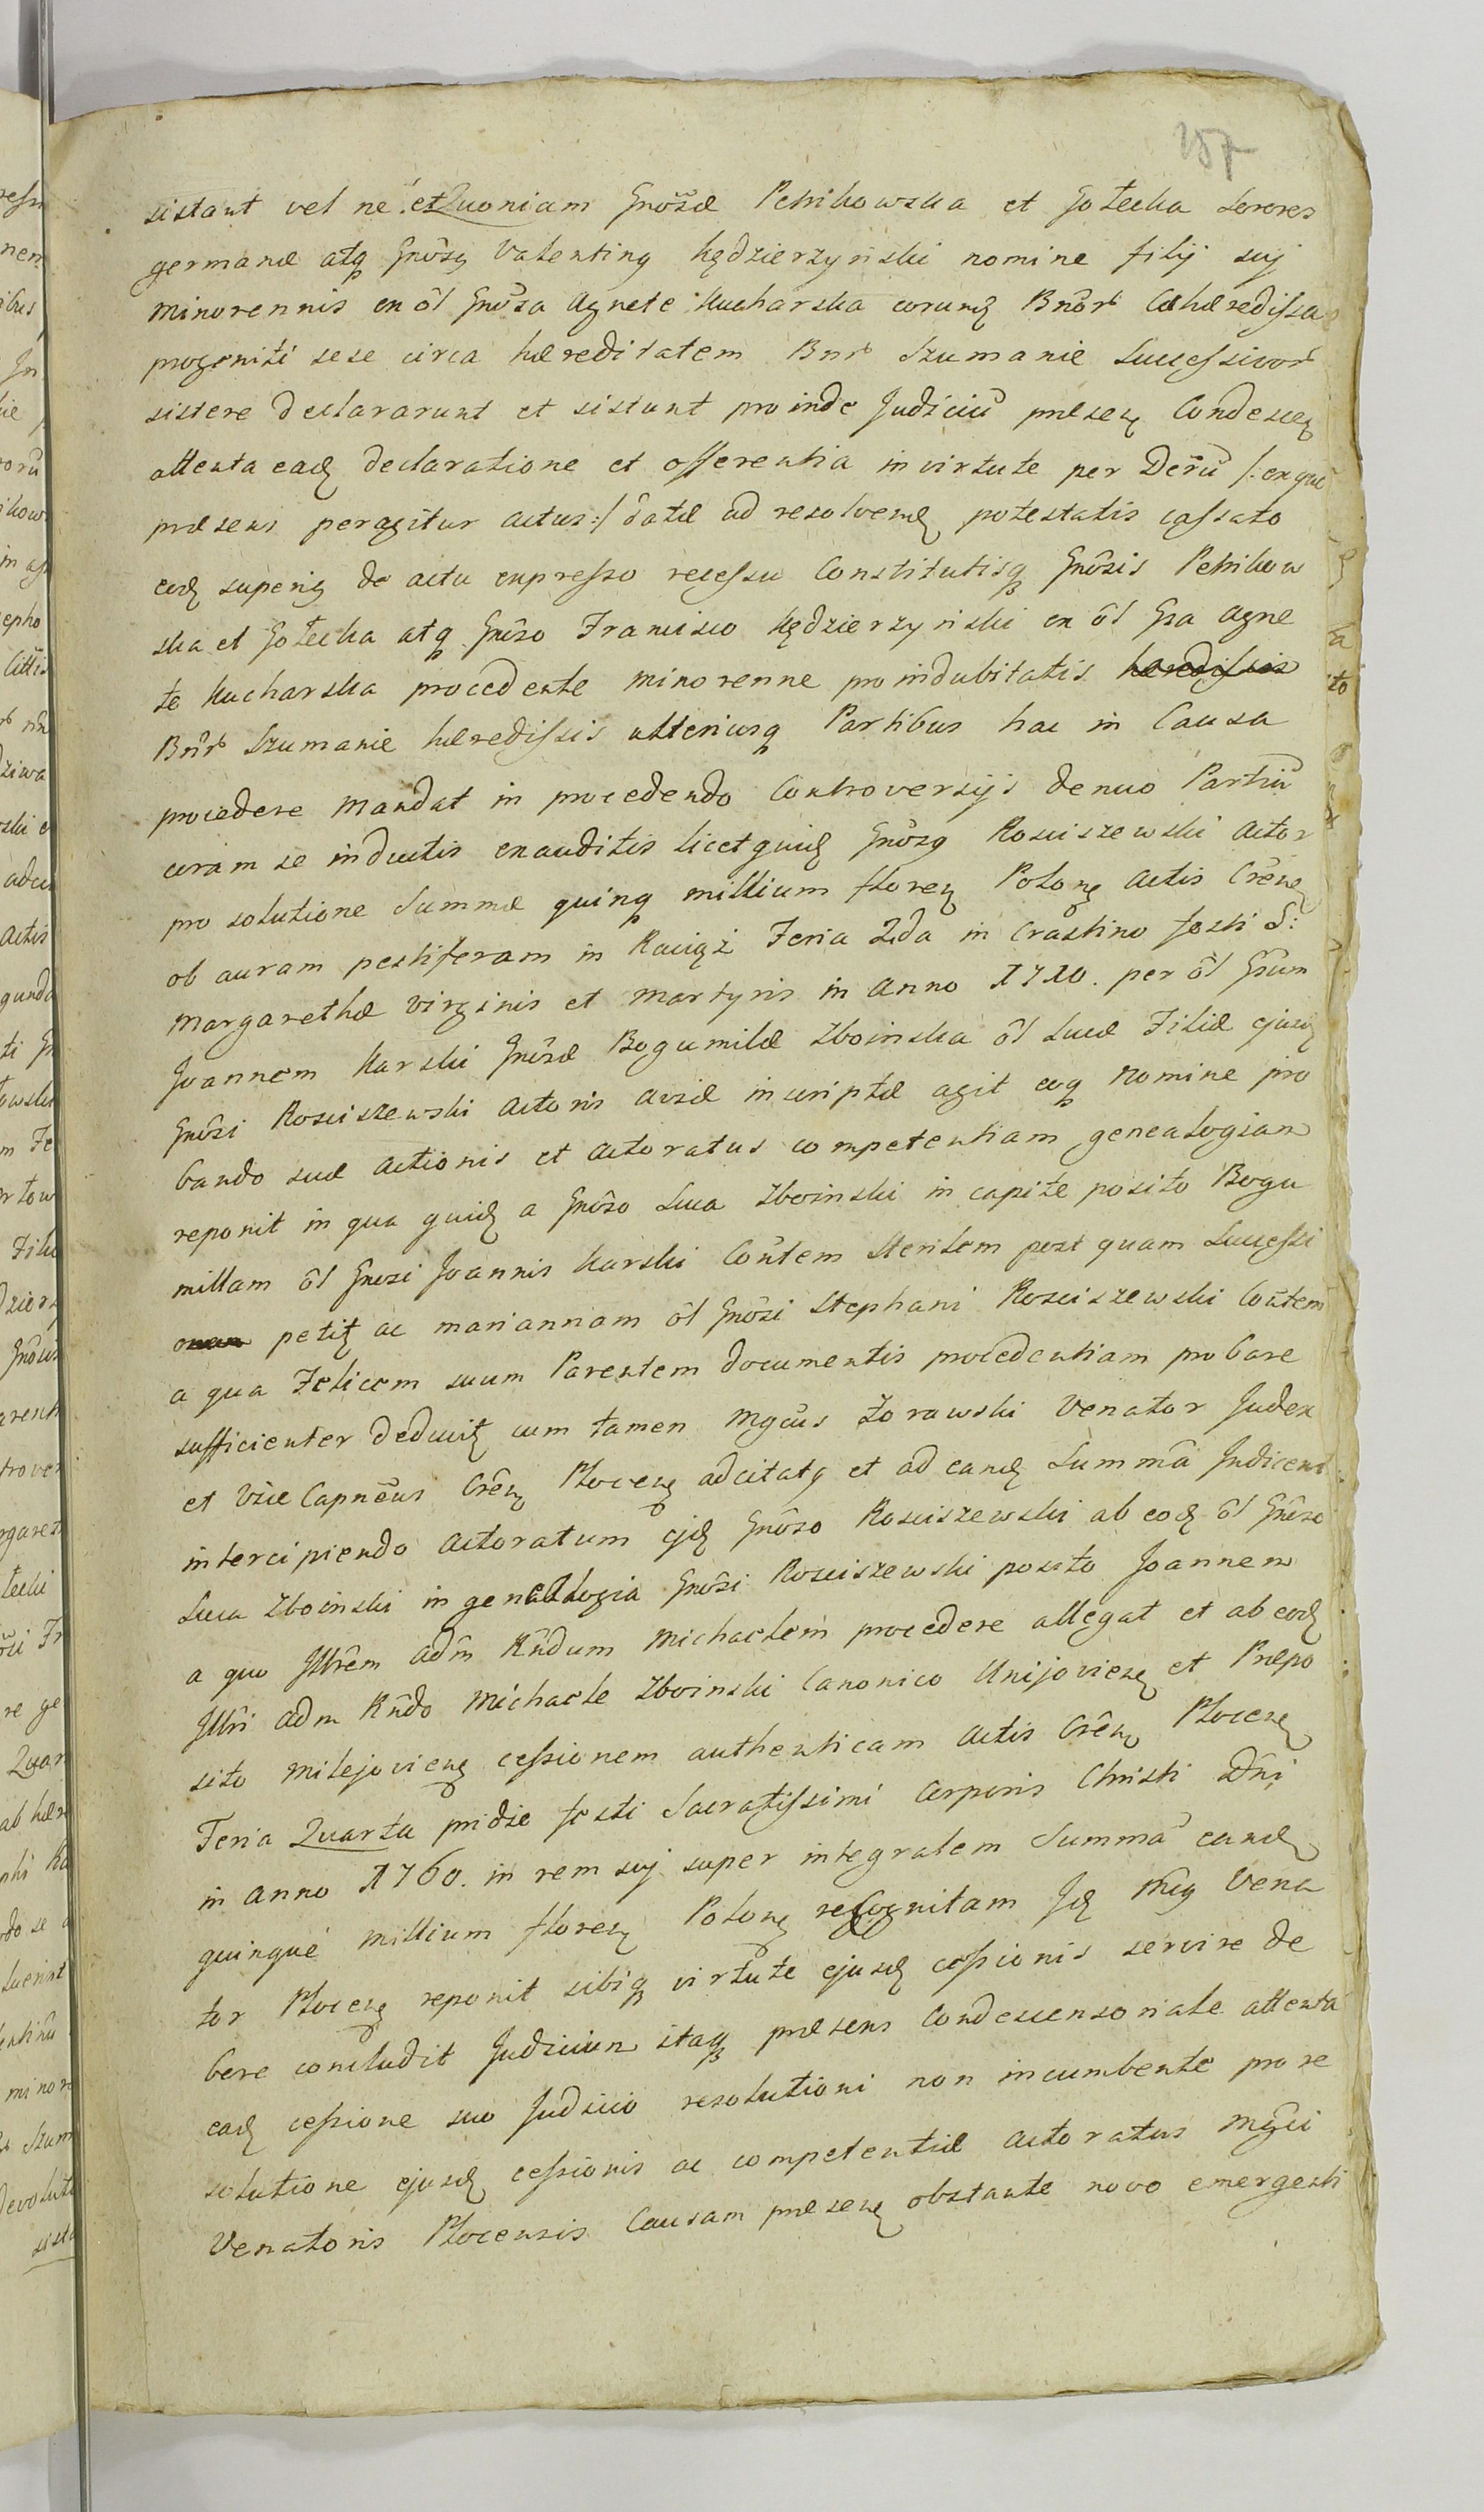 257
sistant vel ne. et Quoniam Gnõsæ Petrikowska et Gołecka Sorores
germanæ atq Gnõsg Valenting Kędzierzyński nomine filij suj
minorennis ex õl Gnõsa Agnete Kucharska eorunq Bnõr Cohæredissa
progeniti sese circa hæreditatem Bnr Szumanie Successivor
sistere declararunt et sistunt proinde Judiciũ præseng Condescen
attenta eadq declaratione et offerentia in virtute per Derũ /: ex quo
præsens peragitur actus :/ datæ ad resolvendq potestatis cassato
eodq superig de actu expresso recessu Constitutisq Gnõsis Petrikow
ska et Gołecka atq Gnõso Francisco Kędzierzyński ex õl Gsa Agne
te Kucharska procedente minorenne pro indubitatis
Bnr Szumanie hæredissis ulteriusq Partibus hac in Causa
procedere mandat in procedendo Controversijs denuo Partiũ
coram se inductis exauditis licet quidq Gnõsg Rosciszewski Actor
pro solutione Summæ quinq millium floreng Polong Actis Crẽng
ob auram pestiferam in Raciąż Feria 2da in Crastino festi S:
Margarethæ Virginis et Martyris in Anno 1710. per õl Gsum
Joannem Karski Gnõsæ Bogumilæ Zboinska õl Lucæ Filiæ ejusq
Gnõsi Rosciszewski Actoris Aviæ inscriptæ agit eoq nomine pro
bando suæ Actionis et Actoratus competentiam genealogiam
reponit in qua quidq a Gnõso Luca Zboinski in capite posito Bogu
millam õl Gnosi Joannis Karski Coñtem Sterilem post quam Successi
onem petitq ac Mariannam õl Gnõsi Stephani Rosciszewski Coñtem
a qua Felicem suum Parentem documentis procedentiam probare
sufficienter deducitq cum tamen Mgcũs Zorawski Venator Judex
et Vice Capnẽus Crẽng Ploceng adcitatg et ad eandq Summã Judicem
intercipiendo Actoratum ejdq Gnõso Rosciszewski ab eodq õl Gnõso
Luca Zboinski in genealogia Gnõsi Rosciszewski posito Joannem
a quo Jllrẽm Adm̃ Rñdum Michaelem procedere allegat et ab eodq
Jllri Adm Rñdo Michaele Zboinski Canonico Unijovieng et Præpo
sito Milejovieng cessionem authenticam Actis Crẽng Ploceng
Feria Quarta pridie festi Sacratissimi Corporis Christi Dñi
in Anno 1760. in rem suj super integralem Summã eandq
quinque millium floreng Polong recognitam Jdq Mcg Vena
tor Ploceng reponit sibiq virtute ejusdq cessionis servire de
bere concludit Judicium itaq præsens Condescensoriale attenta
eadq cessione suo Judicio resolutioni non incumbente pro re
solutione ejusdq cessionis ac competentiæ actoratus Mgci
Venatoris Plocensis Causam præseng obstante novo emergenti